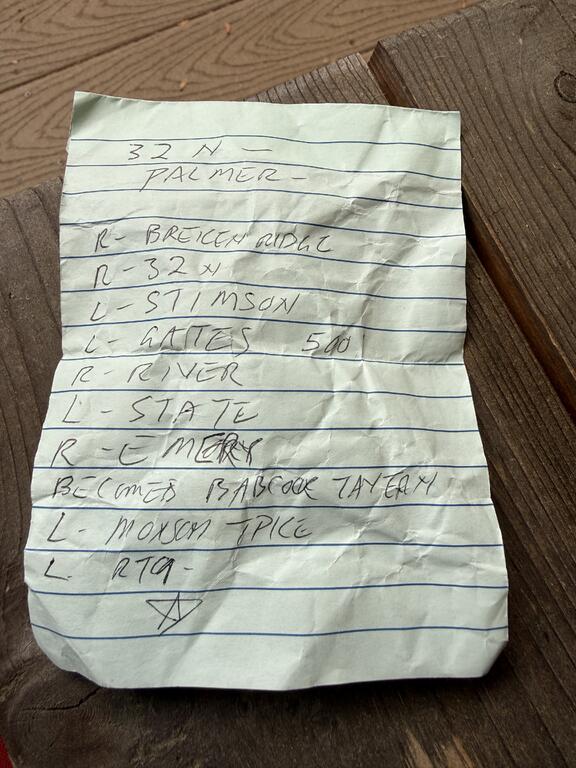 32 N —
PALMER -
R - BREKEN RIDGE
R - 32 N
L - STIMSON
L - GATES 500
R - RIVER
L - STATE
R - EMERY
BECOMES BABCOCK TAVERN
L - MONSON TPKE
L. RT 9 -